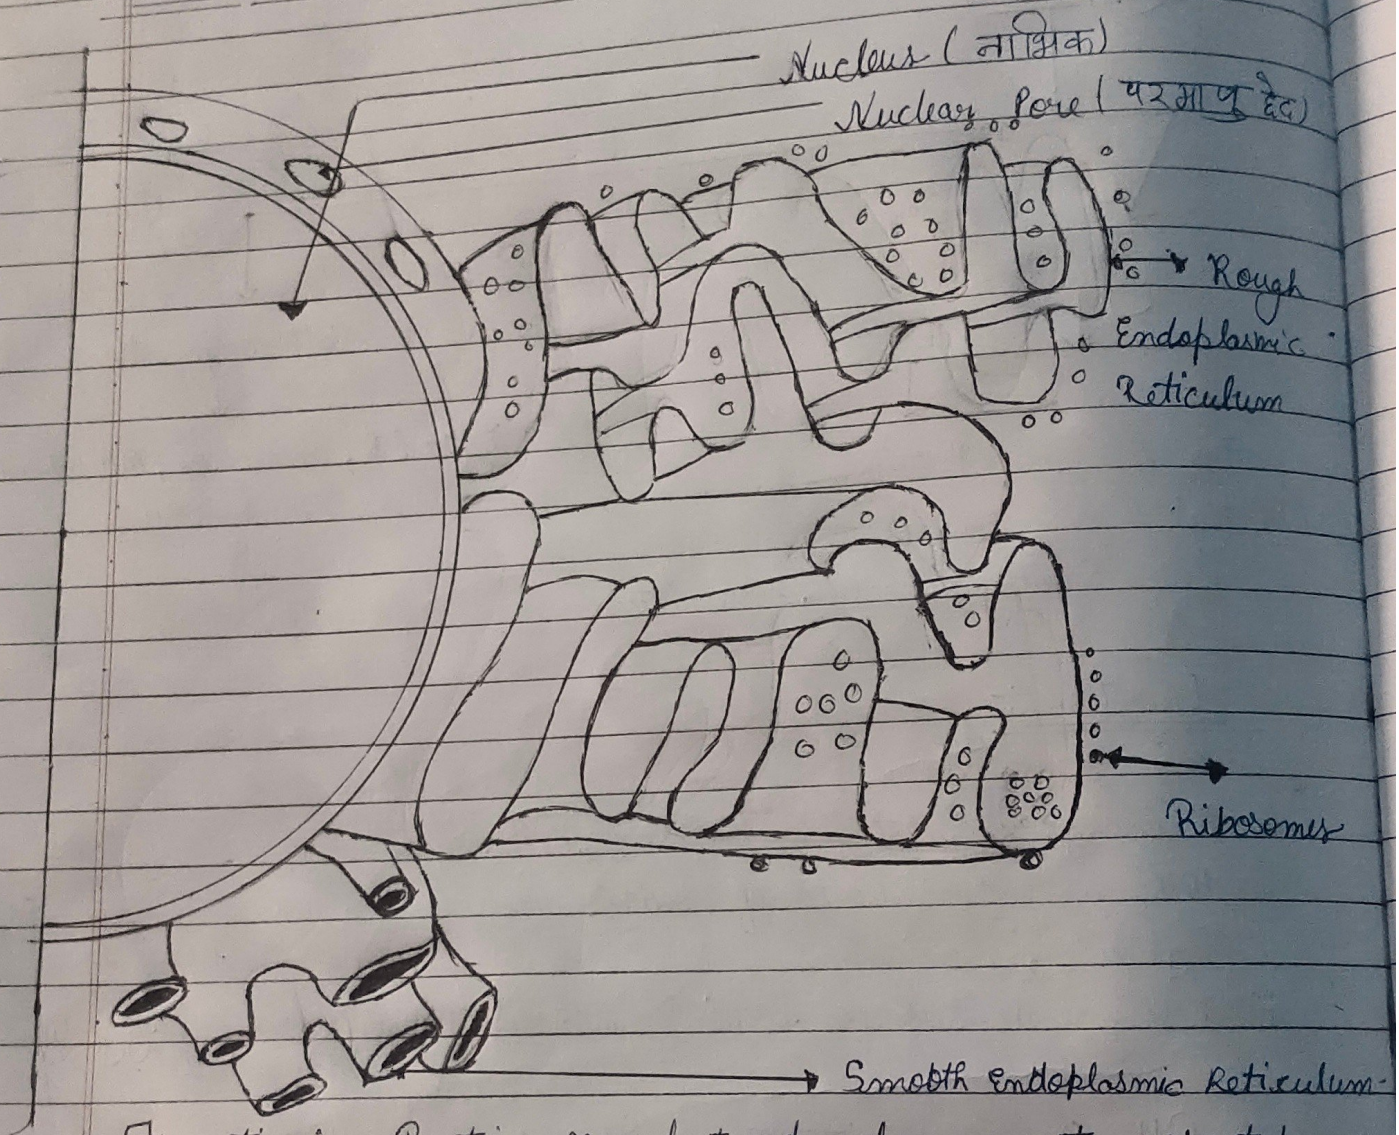 Nucleus (नाभिक)
Nuclear Pore (परमाणु छेद)
Rough
Endoplasmic
Reticulum
Ribosomes
Smooth Endoplasmic Reticulum-